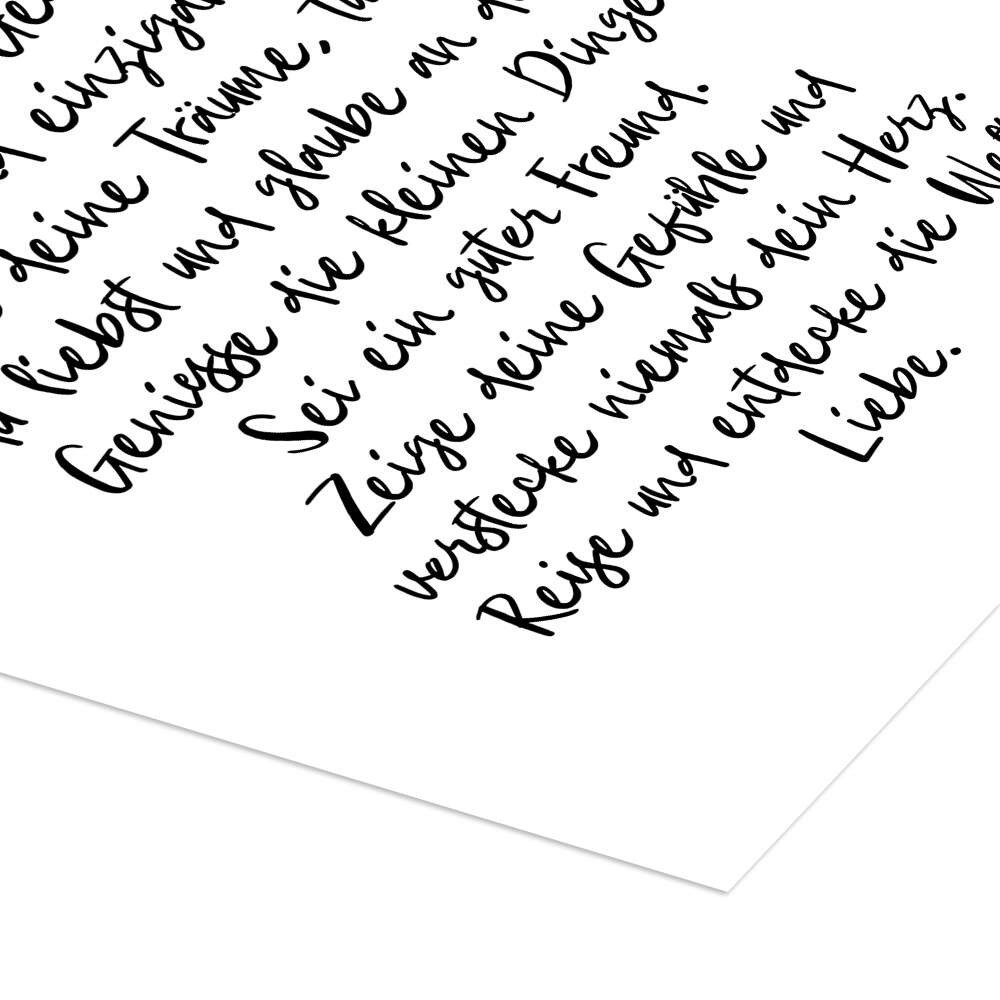 deine Träume,
liebst und glaube an
Geniesse die kleinen Dinge
Sei ein guter Freund.
Zeige deine Gefühle und
verstecke niemals dein Herz.
Reise und entdecke die
Liebe.